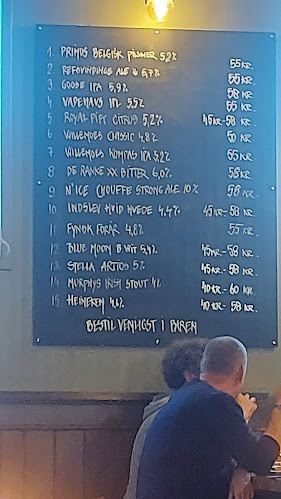 1. PRIMUS BELGISK PILSNER 5,2% 55 KR.
2 REFSVINDINGE ALE 16 5,7% 55 KR.
3 GOOSE IPA 5,9% 58 KR.
4 VAPEHAUS IPL 5,5% 55 KR.
5 ROYAL PIFT CITRUS 5,2% 45 KR - 58 KR.
6 WILLEMOES CLASSIC 4,8% 50 KR.
7 WILLEMOES KOMPAS IPA 5,2% 55 KR.
8 DE RANKE XX BITTER 6,0% 58 KR.
9 N'ICE CHOUFFE STRONG ALE 10% 58 KR.
10 INDSLEV HVID HVEDE 4,4% 45 KR - 58 KR.
11 FYNSK FORÅR 4,8% 55 KR.
12 BLUE MOON B. WIT 5,4% 45 KR - 58 KR.
13 STELLA ARTIOS 5% 45 KR - 58 KR.
14 MURPHYS IRISH STOUT 4% 40 KR - 60 KR.
15 HEINEKEN 4,6% 40 KR - 58 KR.
BESTIL VENLIGST I BAREN